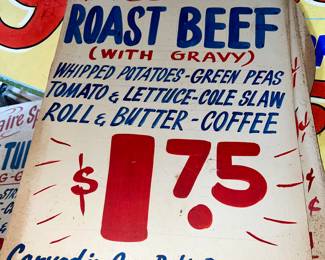 ROAST BEEF
(WITH GRAVY)
WHIPPED POTATOES-GREEN PEAS
TOMATO & LETTUCE-COLE SLAW
ROLL & BUTTER - COFFEE
$1.75